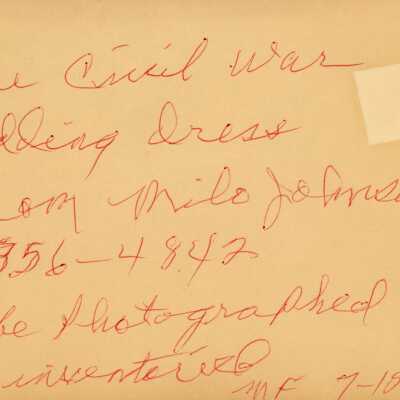 e Civil War
dding dress
rom Milo Johnso
356-4842
be Photographed
inventoried
MF 7-18